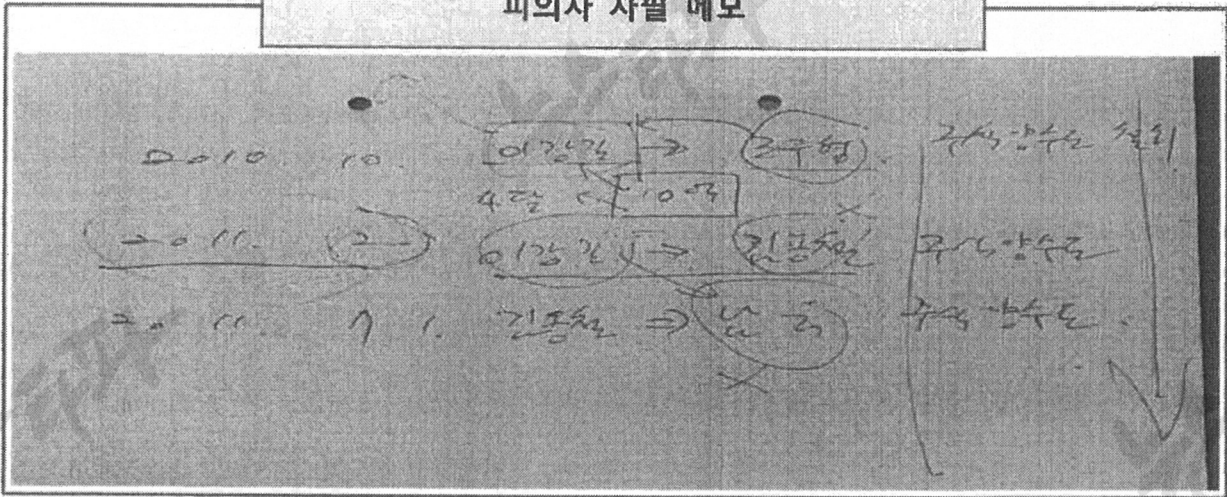 피의자 자필 메모
2010. 10. 이강길 → 조우형 주식 양수도 철회
4달 10억
2011. 2 이강길 → 김용철 주식 양수도
2011. 7 1. 김용철 ⇒ 남욱 주식 양수도.